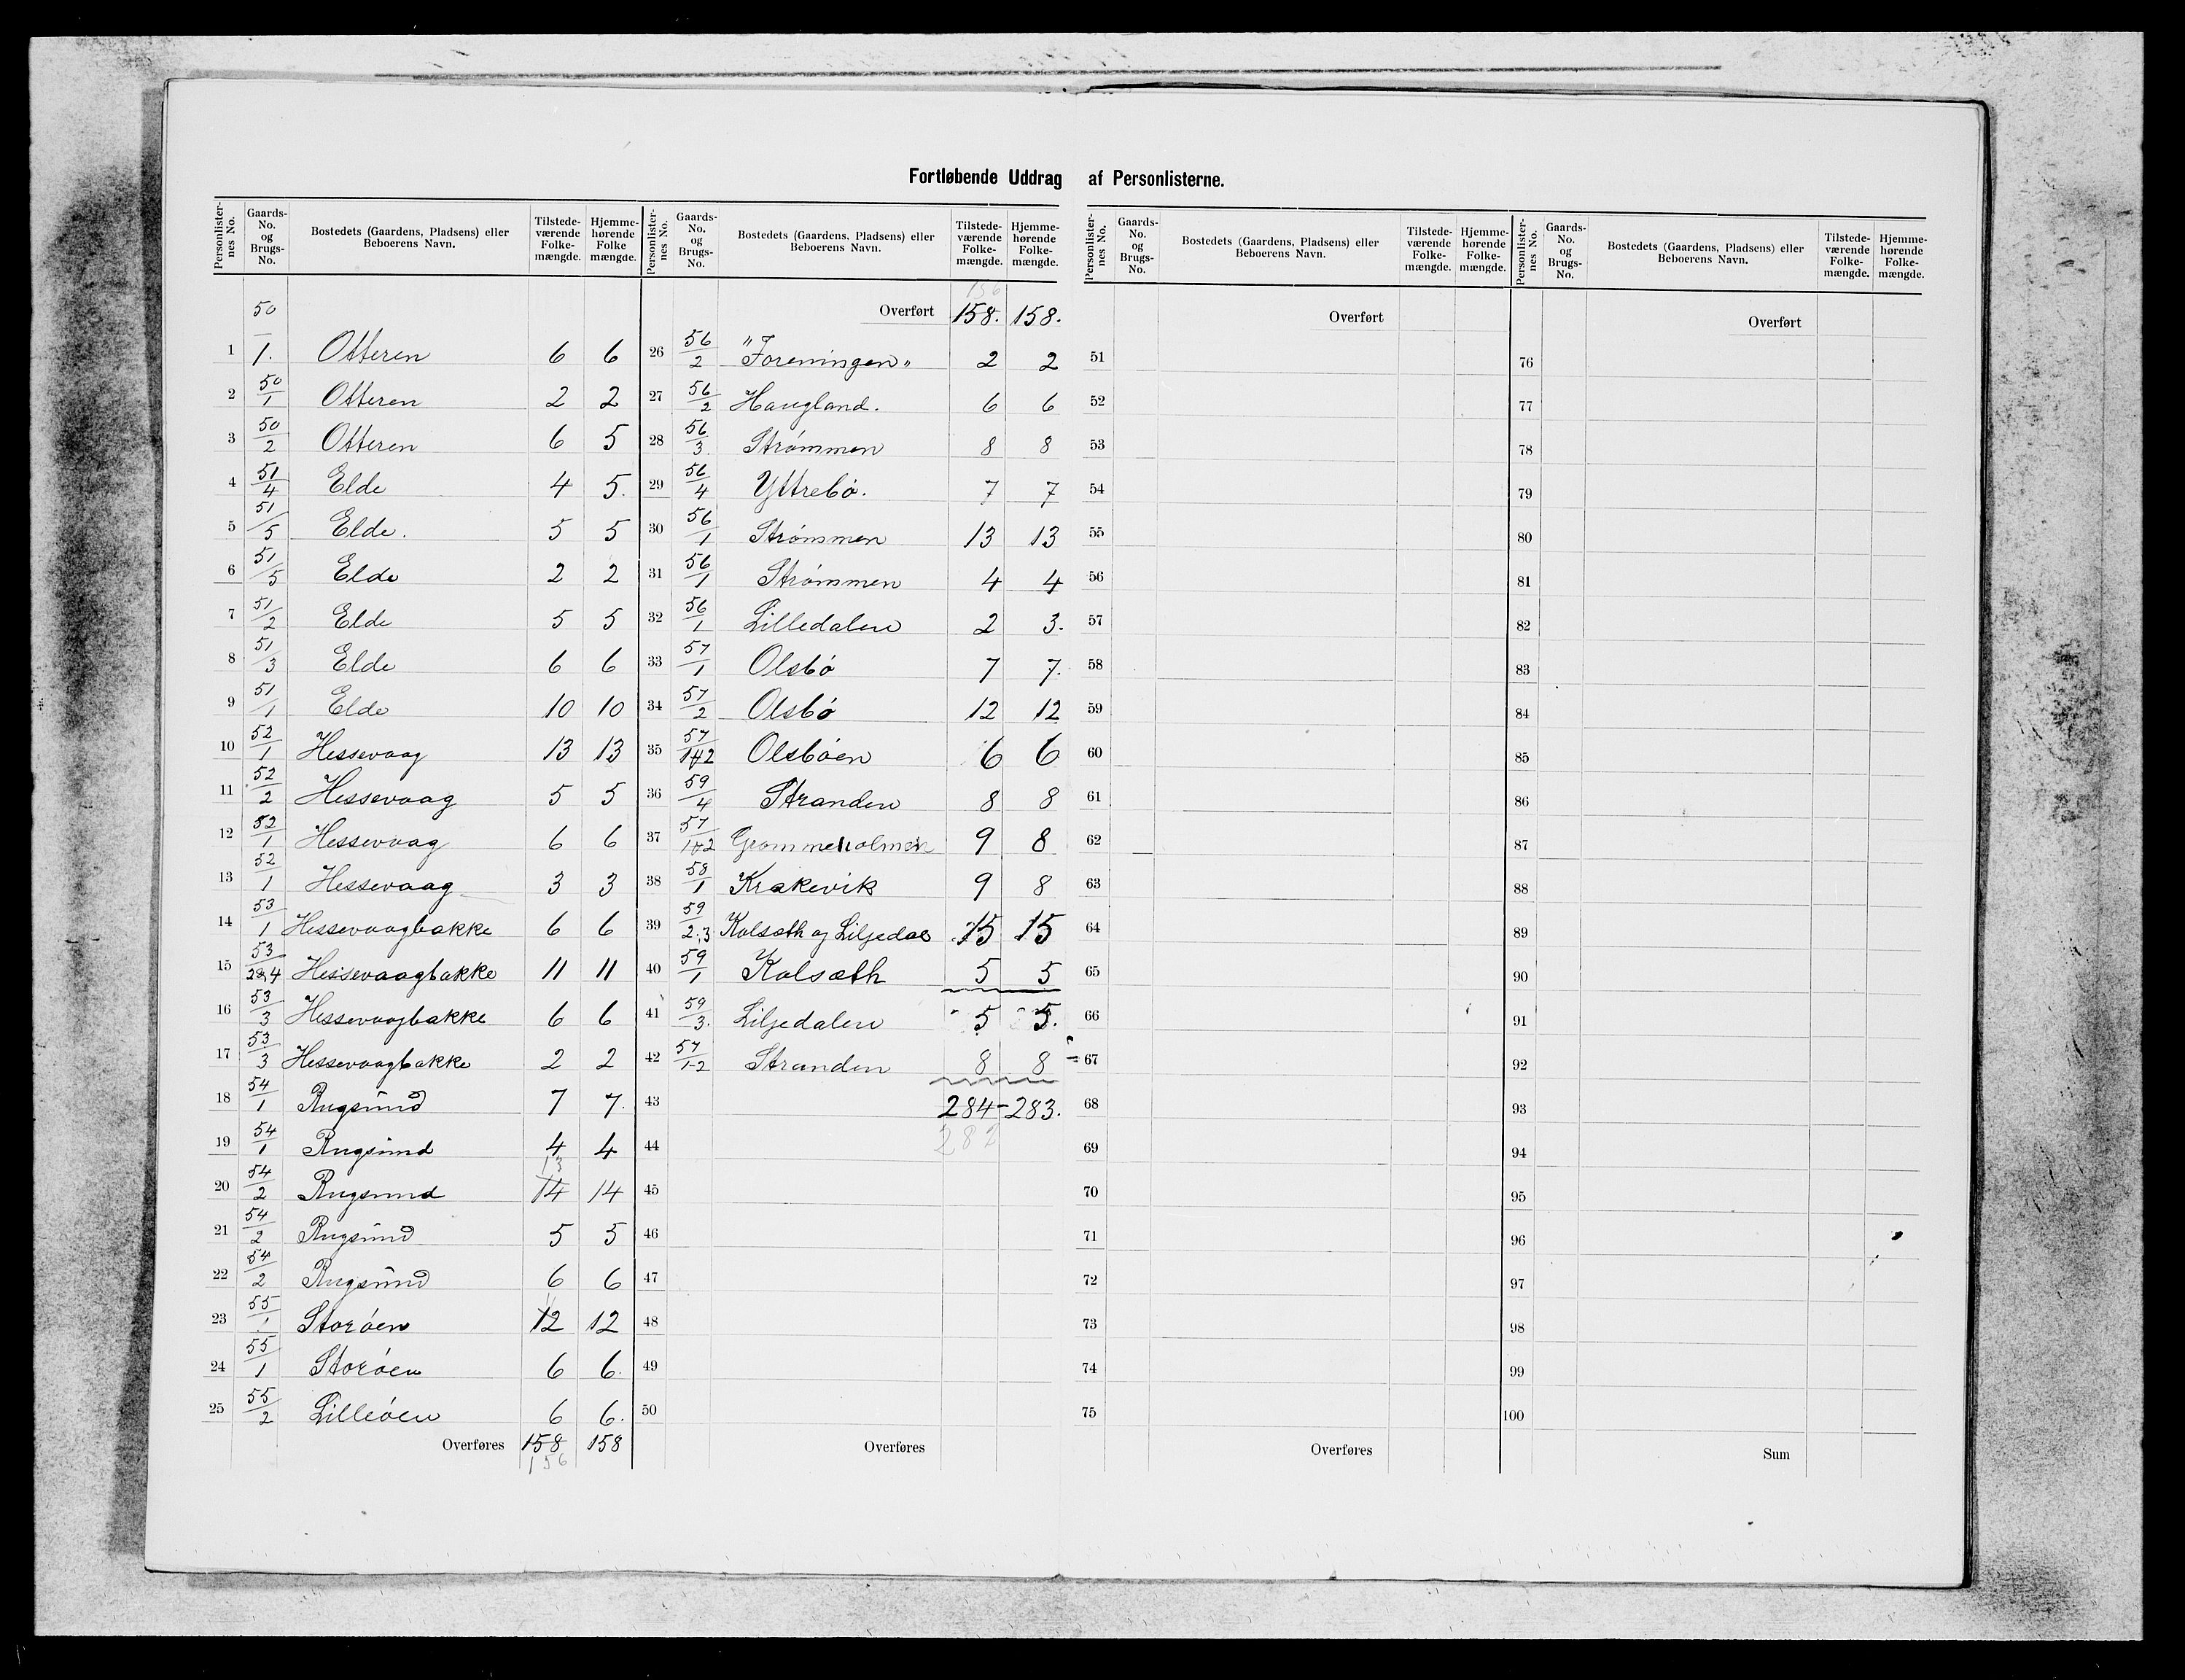 Fortløbende Uddrag af Personlisterne.
Personlister-nes No. | Gaards-No. og Brugs-No. | Bostedets (Gaardens, Pladsens) eller Beboerens Navn. | Tilstede-værende Folke-mængde. | Hjemme-hørende Folke mængde.
1 50/1. Otteren 6 6
2 50/1 Otteren 2 2
3 50/2 Otteren 6 5
4 51/4 Elde 4 5.
5 51/5 Elde. 5 5
6 51/5 Elde 2 2
7 51/2 Elde 5 5
8 51/3 Elde 6 6
9 51/1 Elde 10 10
10 52/1 Hessevaag 13 13
11 52/2 Hessevaag 5 5
12 52/1 Hessevaag 6 6
13 52/1 Hessevaag 3 3
14 53/1 Hessevaagbakke 6 6
15 53/2&4 Hessevaagbakke 11 11
16 53/3 Hessevaagbakke 6 6
17 53/3 Hessevaagbakke 2 2
18 54/1 Rugsund 7 7.
19 54/1 Rugsund 4 4
13
20 54/2 Rugsund 14 14
21 54/2 Rugsund 5 5
22 54/2 Rugsund 6 6
11
23 55/1 Storøen 12 12
24 55/1 Storøen 6 6.
25 55/2 Lilleøen 6 6.
Overføres 158 158
156
Personlister-nes No. | Gaards-No. og Brugs-No. | Bostedets (Gaardens, Pladsens) eller Beboerens Navn. | Tilstede-værende Folke-mængde. | Hjemme-hørende Folke-mængde.
156
Overført 158. 158.
26 56/2 "Foreningen" 2 2
27 56/2 Haugland. 6 6
28 56/3. Strømmen 8 8
29 56/4 Yttrebø. 7 7
30 56/1 Strømmen 13 13
31 56/1 Strømmen 4 4
32 56/1 Lilledalen 2 3.
33 57/1 Olsbø 7 7.
34 57/2 Olsbø 12 12
35 57/1+2 Olsbøen 6 6
36 59/4 Stranden 8 8
37 57/1+2 Grommeholmen 9 8
38 58/1 Krakevik 9 8
39 59/2.,3 Kolsæth og Liljedal 15 15
40 59/1 Kolsæth 5 5
41 59/3. Liljedalen 5 5.
42 57/1-2 Stranden 8 8
43 284-283.
44 282
45
46
47
48
49
50
Overføres
Personlister-nes No. | Gaards-No. og Brugs-No. | Bostedets (Gaardens, Pladsens) eller Beboerens Navn. | Tilstede-værende Folke-mængde. | Hjemme-hørende Folke-mængde.
Overført
51
52
53
54
55
56
57
58
59
60
61
62
63
64
65
66
67
68
69
70
71
72
73
74
75
Overføres
Personlister-nes No. | Gaards-No. og Brugs-No. | Bostedets (Gaardens, Pladsens) eller Beboerens Navn. | Tilstede-værende Folke-mængde. | Hjemme-hørende Folke-mængde.
Overført
76
77
78
79
80
81
82
83
84
85
86
87
88
89
90
91
92
93
94
95
96
97
98
99
100
Sum